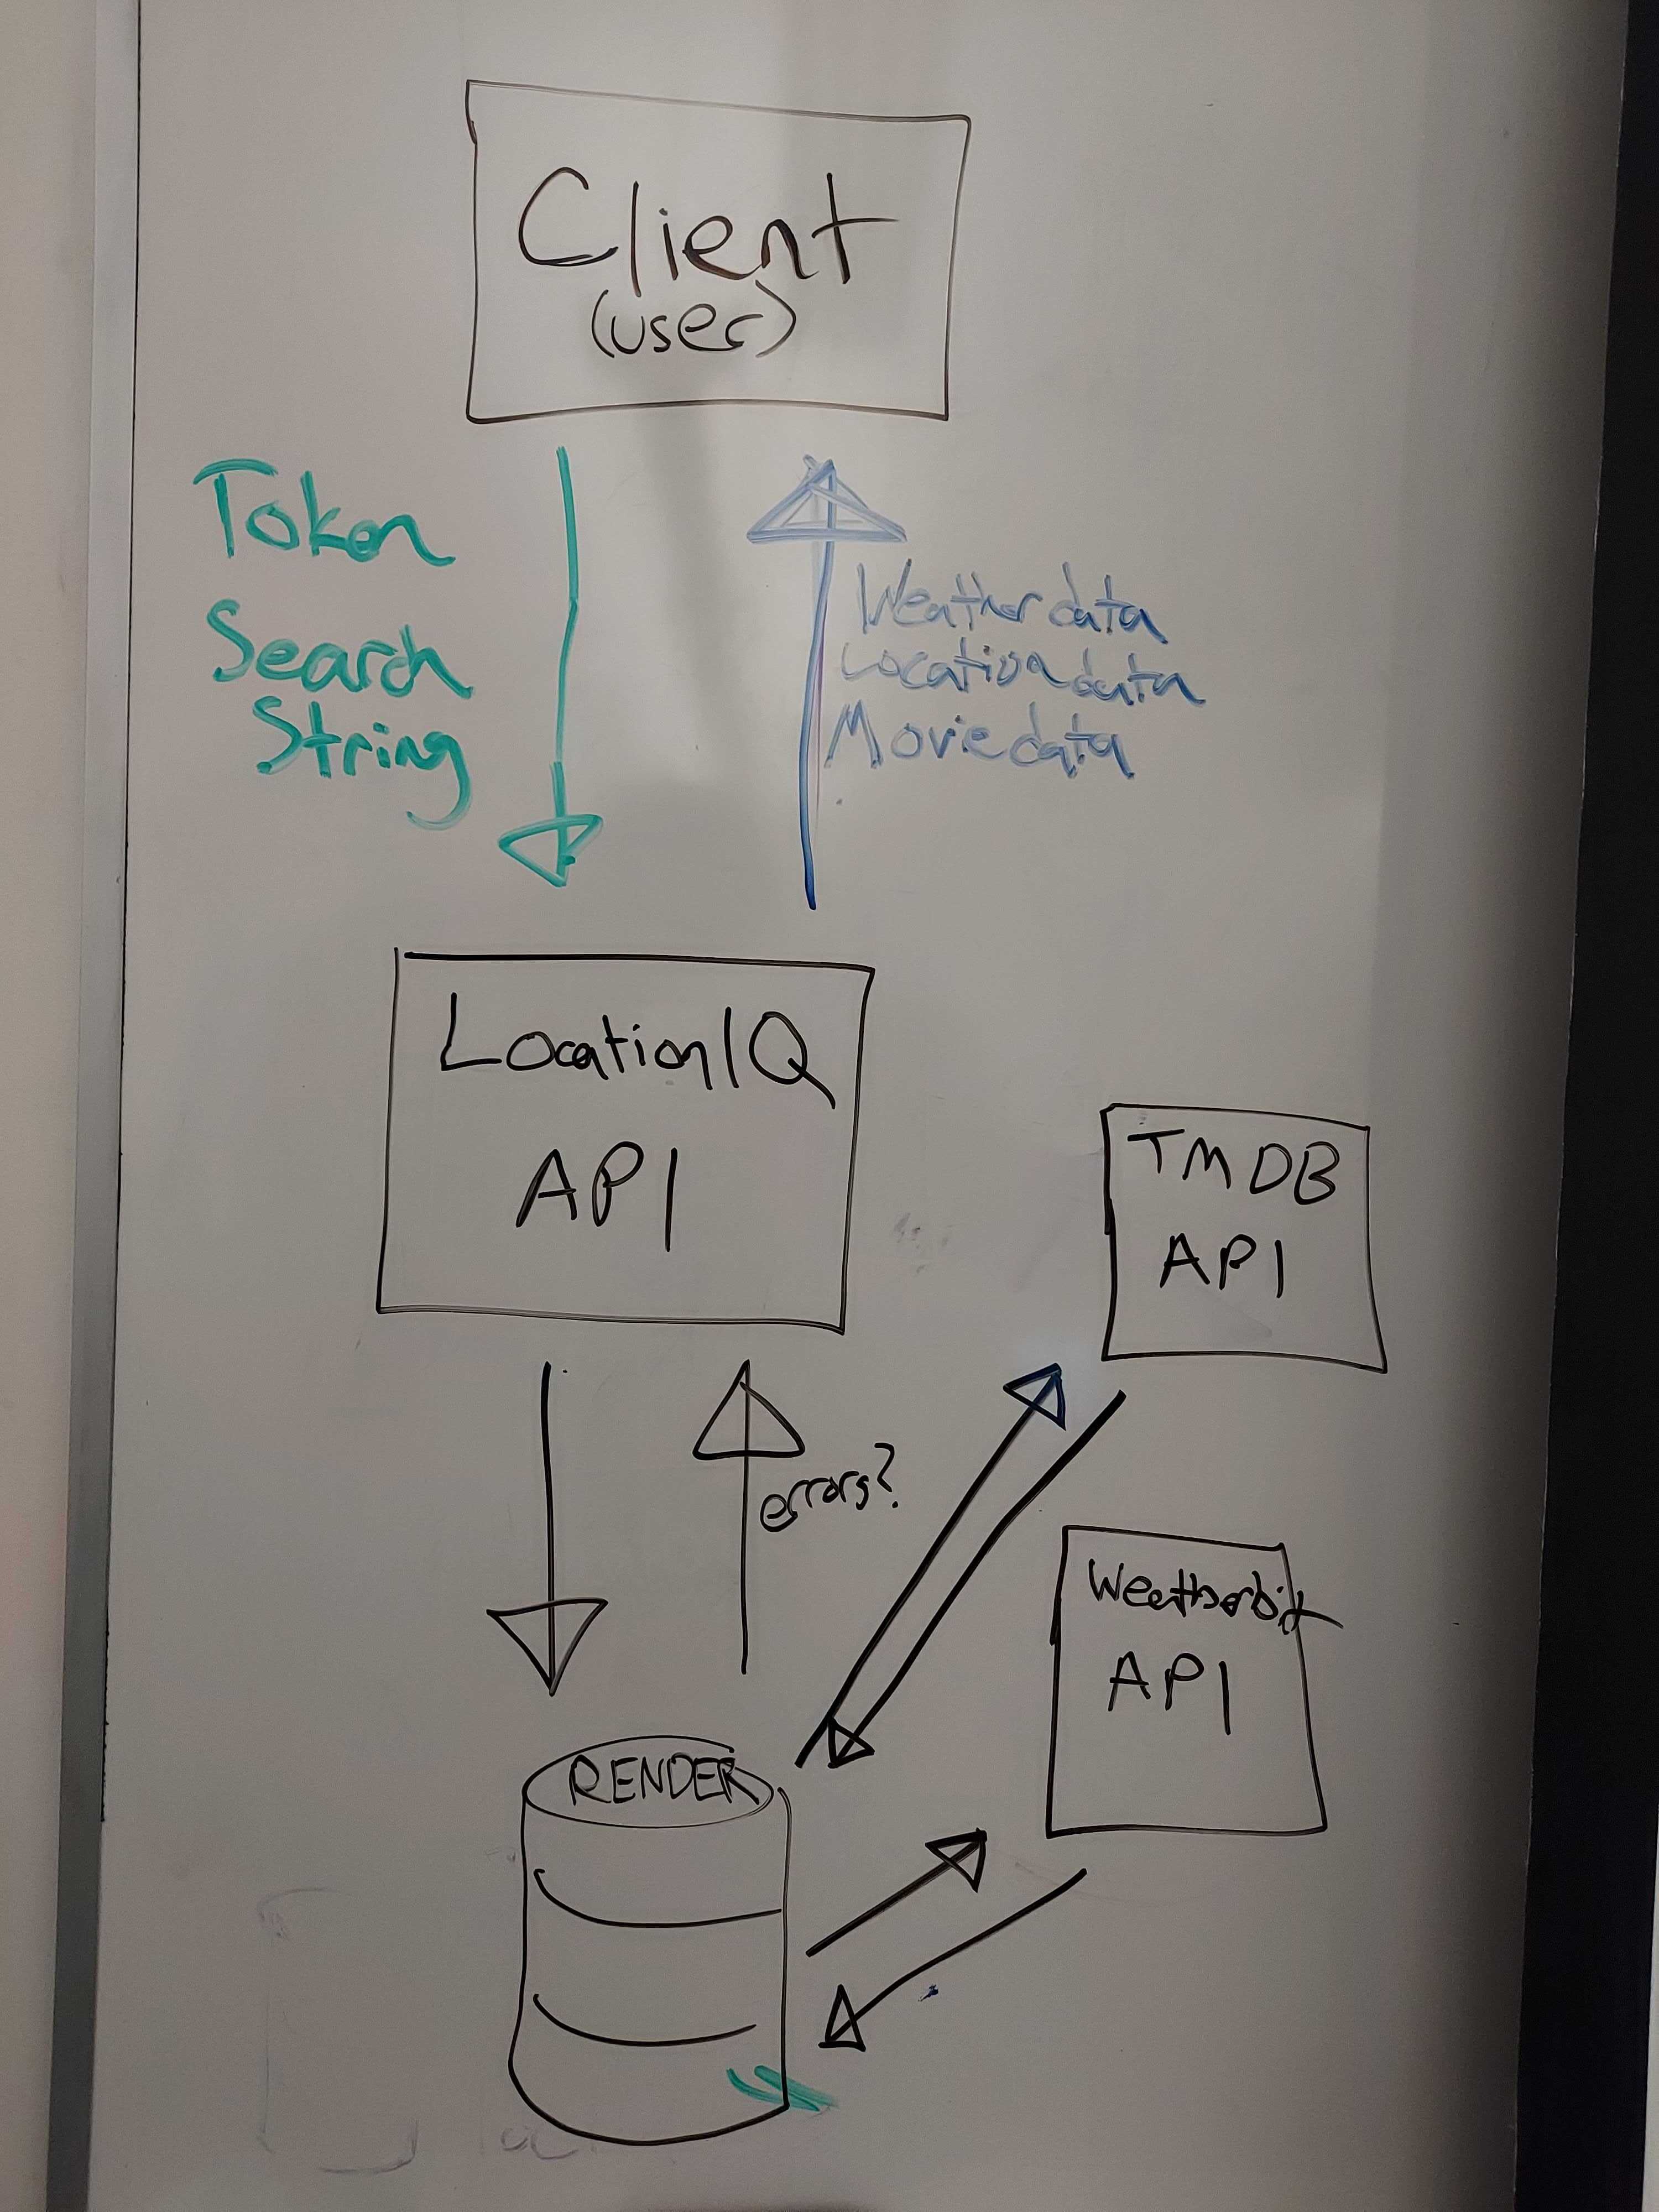 Client
(user)
Token
Search
String
Weather data
Location data
Movie data
LocationIQ
API
TMDB
API
errors?
Weatherbit
API
RENDER